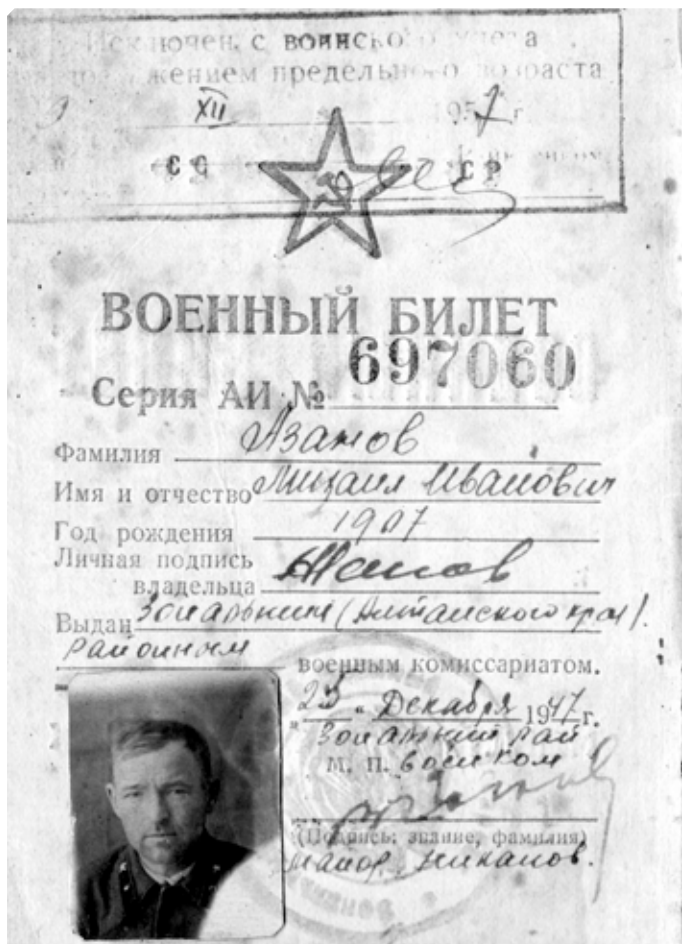 Исключен с воинского учета
предельного возраста
XII 1957 г
СС СР
ВОЕННЫЙ БИЛЕТ
Серия АИ № 697060
Фамилия Азанов
Имя и отчество Михаил Иванович
Год рождения 1907
Личная подпись
владельца Азанов
Выдан Зональным (Алтайского края).
районным военным комиссариатом.
"23" Декабря 1947 г.
Зональный рай
м. п. военком
(Подпись: звание, фамилия)
майор